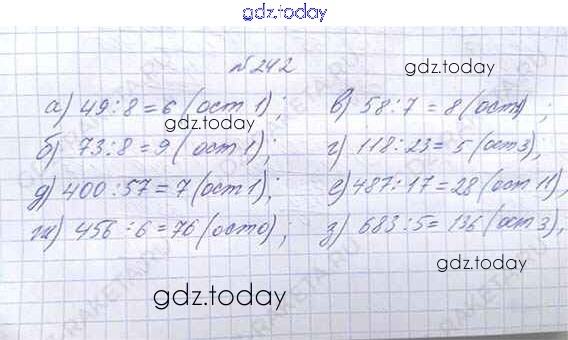 gdz.today
№242
gdz.today
а) 49:8=6 (ост 1); в) 58:7=8(ост);
gdz.today
б) 73:8=9 (ост 1); г) 118:23=5 (ост3),
д) 400:57=7(ост 1); е) 487:17=28(ост 11),
ж) 456:6=76 (ост0); з) 683:5=136(ост 3),
gdz.today
gdz.today